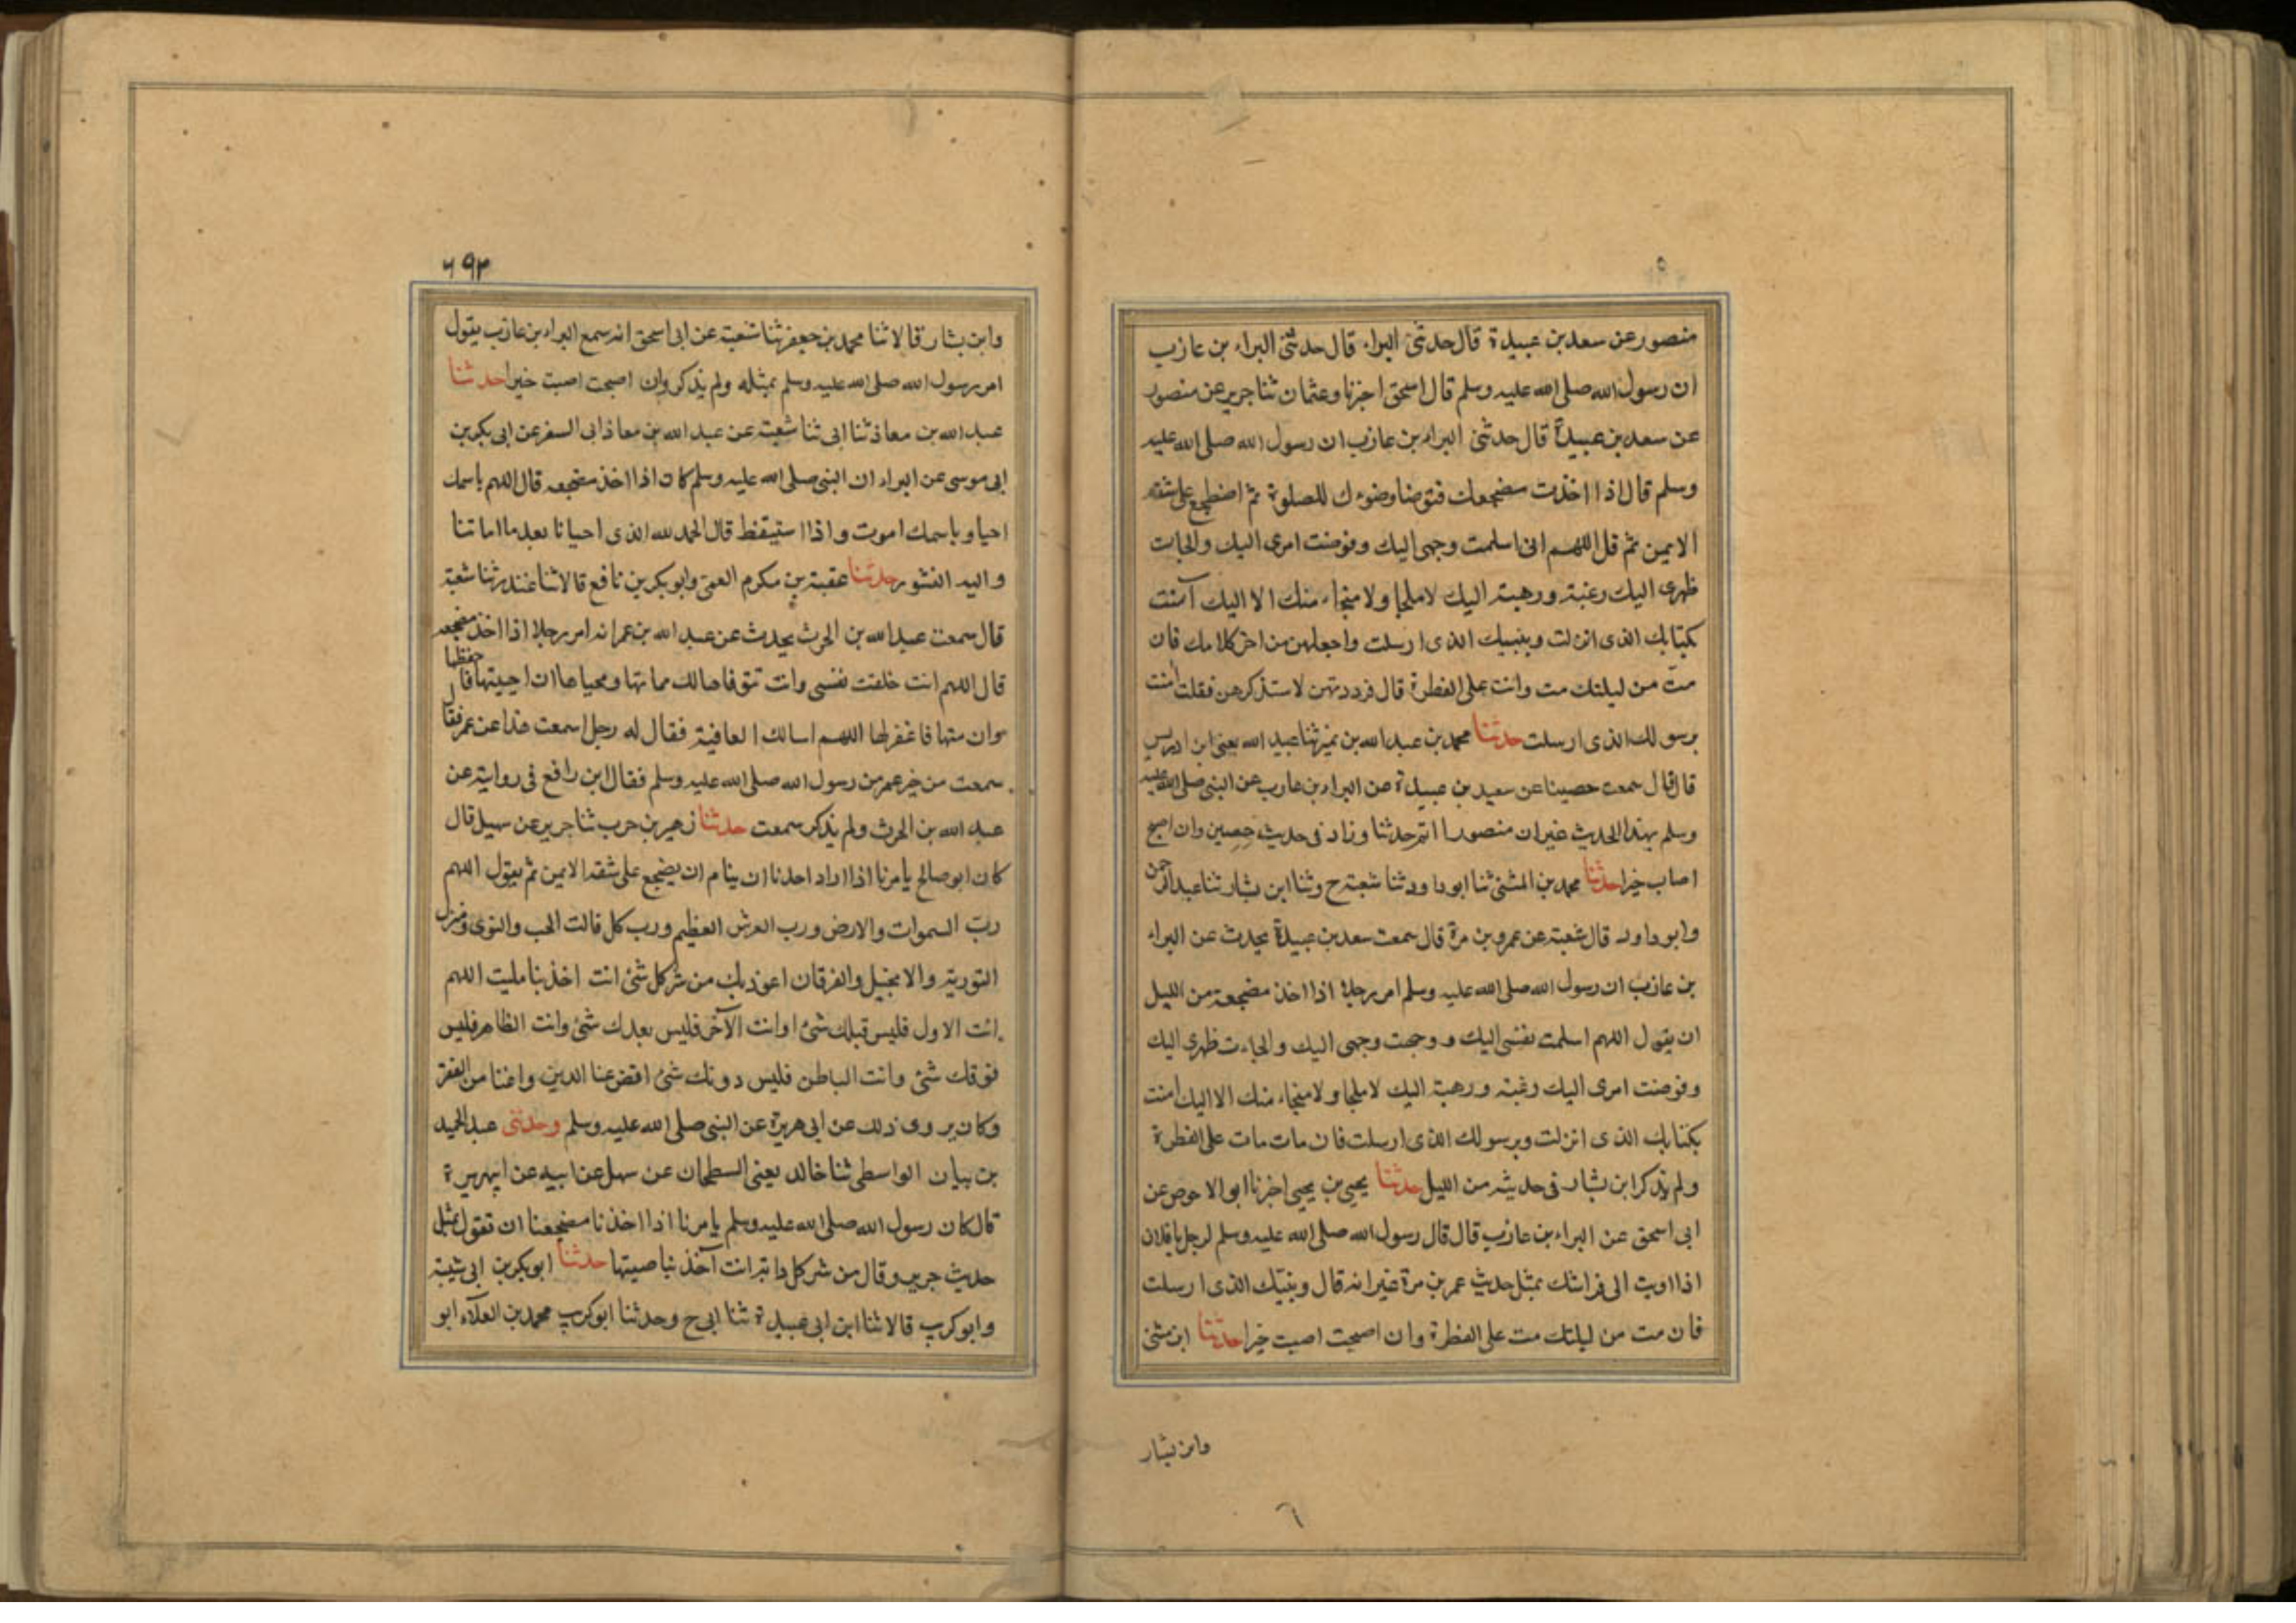 ٥
منصور عن سعد بن عبيدة قال حدثنى البراء قال حدثنى البراء بن عازب
ان رسول الله صلى الله عليه وسلم قال اسحق اخبرنا وعثمان ثنا جرير عن منصور
عن سعد بن عبيدة قال حدثنى البراء بن عازب ان رسول الله صلى الله عليه
وسلم قال اذا اخذت مضجعك فتوضا وضوءك للصلوة ثم اضطجع على شقه
الايمن ثم قل اللهم انى اسلمت وجهى اليك وفوضت امرى اليك والجات
ظهرى اليك رغبة ورهبة اليك لا ملجا ولا منجاء منك الا اليك آمنت
بكتابك الذى انزلت وبنبيك الذى ارسلت واجعلهن من اخر كلامك فان
مت من ليلتك مت وانت على الفطرة قال فرددتهن لاستذكرهن فقلت امنت
برسولك الذى ارسلت حدثنا محمد بن عبد الله بن نمير ثنا عبد الله يعنى ابن ادريس
قال قال سمعت حصينا عن سعيد بن عبيدة عن البراء بن عازب عن النبى صلى الله عليه
وسلم بهذا الحديث غير ان منصورا اتم حدثنا وزاد فى حديث حصين وان اصبح
اصاب خيرا حدثنا محمد بن المثنى ثنا ابو داود ثنا شعبة ح وثنا ابن بشار ثنا عبد الرحمن
وابو داود قال شعبة عن عمرو بن مرة قال سمعت سعد بن عبيدة يحدث عن البراء
بن عازب ان رسول الله صلى الله عليه وسلم امر رجلا اذا اخذ مضجعه من الليل
ان يقول اللهم اسلمت نفسى اليك و وجهت وجهى اليك والجاءت ظهرى اليك
وفوضت امرى اليك رغبة ورهبة اليك لا ملجا ولا منجاء منك الا اليك امنت
بكتابك الذى انزلت وبرسولك الذى ارسلت فان مات مات على الفطرة
ولم يذكر ابن بشار فى حديثه من الليل حدثنا يحيى بن يحيى اخبرنا ابو الاحوص عن
ابى اسحق عن البراء بن عازب قال قال رسول الله صلى الله عليه وسلم لرجل يا فلان
اذا اويت الى فراشك بمثل حديث عمر بن مرة غير انه قال وبنبيك الذى ارسلت
فان مت من ليلتك مت على الفطرة وان اصبحت اصبت خيرا حدثنا ابن مثنى
وابن بشار
٦
٦٩٣
وابن بشار قالا ثنا محمد بن جعفر ثنا شعبة عن ابى اسحق انه سمع البراء بن عازب يقول
امر رسول الله صلى الله عليه وسلم بمثله ولم يذكر وان اصبحت اصبت خيرا حدثنا
عبد الله بن معاذ ثنا ابى ثنا شعبة عن عبد الله بن معاذ ابى السفر عن ابى بكر بن
ابى موسى عن البراء ان النبى صلى الله عليه وسلم كان اذا اخذ مضجعه قال اللهم باسمك
احيا وباسمك اموت واذا استيقظ قال الحمد لله الذى احيانا بعد ما اماتنا
واليه النشور حدثنا عقبة بن مكرم العمى وابو بكر بن نافع قالا ثنا غندر ثنا شعبة
قال سمعت عبد الله بن الحرث يحدث عن عبد الله بن عمر انه امر رجلا اذا اخذ مضجعه
قال اللهم انت خلقت نفسى وانت تتوفاها لك مماتها ومحياها ان احييتها فاحفظها
وان متها فاغفر لها اللهم اسالك العافية فقال له رجل اسمعت هذا عن عمر فقال
سمعت من خير عمر من رسول الله صلى الله عليه وسلم فقال ابن رافع فى رواية عن
عبد الله بن الحرث ولم يذكر سمعت حدثنا زهير بن حرب ثنا جرير عن سهيل قال
كان ابو صالح يامرنا اذا اراد احدنا ان ينام ان يضجع على شقه الايمن ثم يقول اللهم
رب السموات والارض ورب العرش العظيم ورب كل فالت الحب والنوى ومنزل
التورية والانجيل والفرقان اعوذ بك من شر كل شئ انت اخذ بناصيته اللهم
انت الاول فليس قبلك شئ وانت الآخر فليس بعدك شئ وانت الظاهر فليس
فوقك شئ وانت الباطن فليس دونك شئ اقض عنا الدين واغننا من الفقر
وكان يروى ذلك عن ابى هريرة عن النبى صلى الله عليه وسلم وحدثنى عبد الحميد
بن بيان الواسطى ثنا خالد يعنى الطحان عن سهل عن ابيه عن ابيهريرة
قال كان رسول الله صلى الله عليه وسلم يامرنا اذا اخذنا مضجعنا ان نقول بمثل
حديث جرير وقال من شر كل دابة انت آخذ بناصيتها حدثنا ابو بكر بن ابى شيبة
وابو كريب قالا ثنا ابن ابى عبيدة ثنا ابى ح وحدثنا ابو كريب محمد بن العلاء ابو